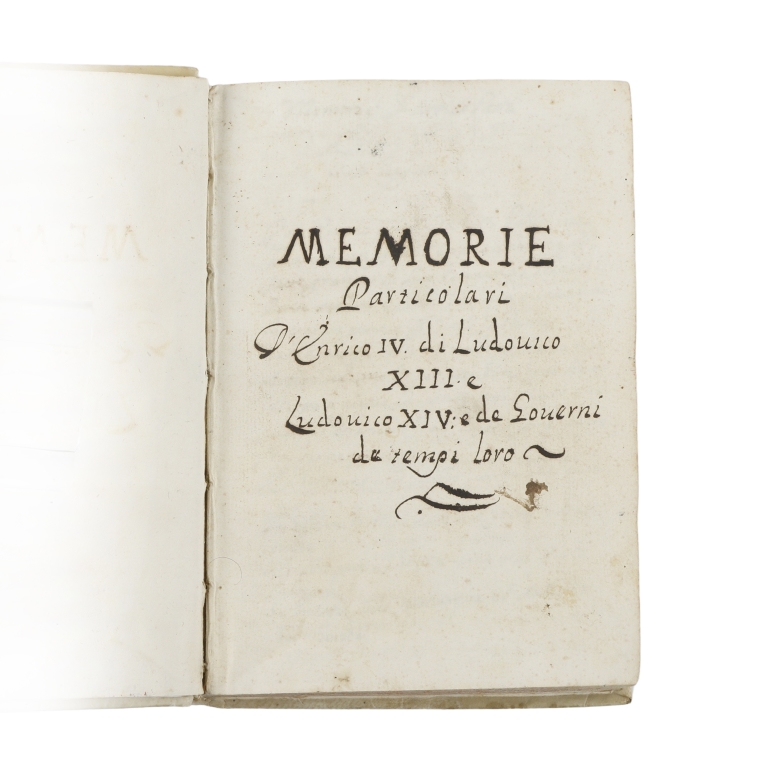 MEMORIE
Particolari
D'Enrico IV. di Ludouico
XIII. e
Ludouico XIV: e de Gouerni
de tempi loro